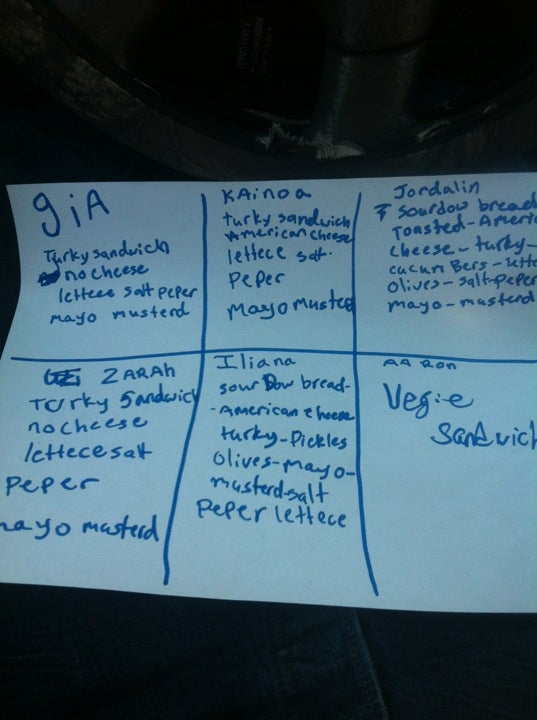 giA
Turky sandwich
no cheese
lettece salt peper
mayo musterd
KAinoa
turky sandwich
American cheese
lettece salt
peper
Mayo musterd
Jordalin
sourdow bread
Toasted-Ameri
cheese-turky-
cucumBers-lette
olives-salt-peper
mayo-musterd
ZARAh
Turky Sandwich
no cheese
lettece salt
peper
mayo musterd
Iliana
sour Dow bread-
-American cheese
turky-Pickles
olives-mayo-
musterd-salt
peper lettece
AAron
Vegie
Sandwich